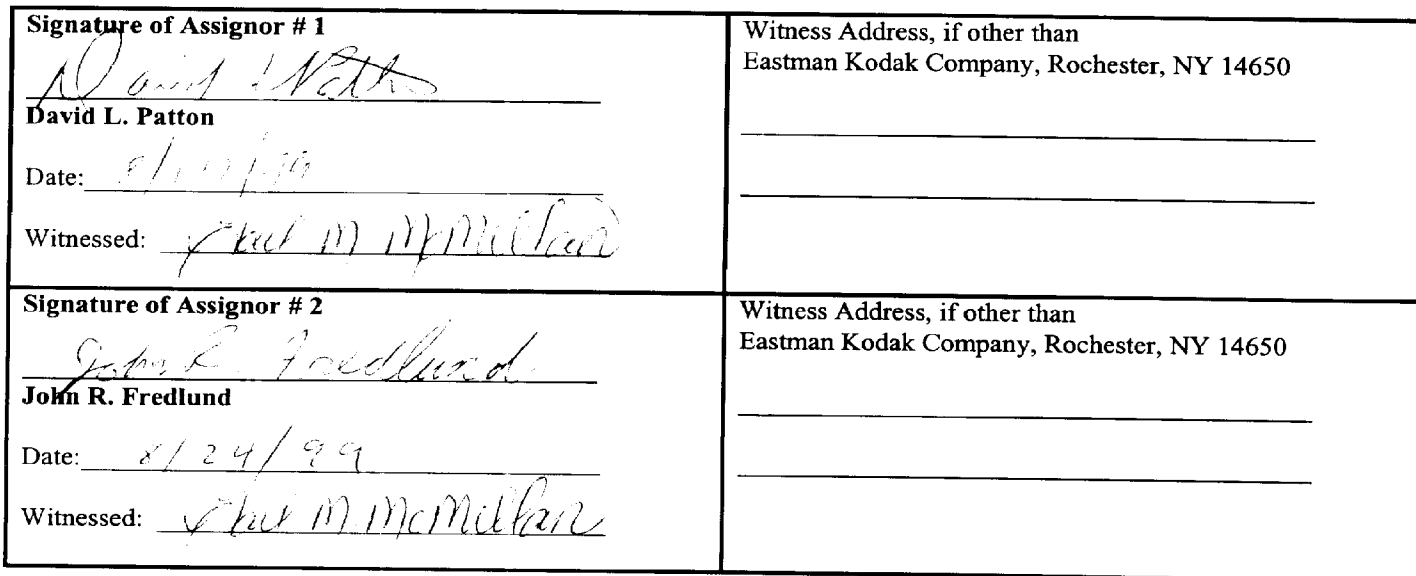 Signature of Assignor # 1
David L Patton
David L. Patton
Date: 8/ /99
Witnessed: M McMillan
Witness Address, if other than
Eastman Kodak Company, Rochester, NY 14650
Signature of Assignor # 2
John R. Fredlund
John R. Fredlund
Date: 8/24/99
Witnessed: M McMillan
Witness Address, if other than
Eastman Kodak Company, Rochester, NY 14650